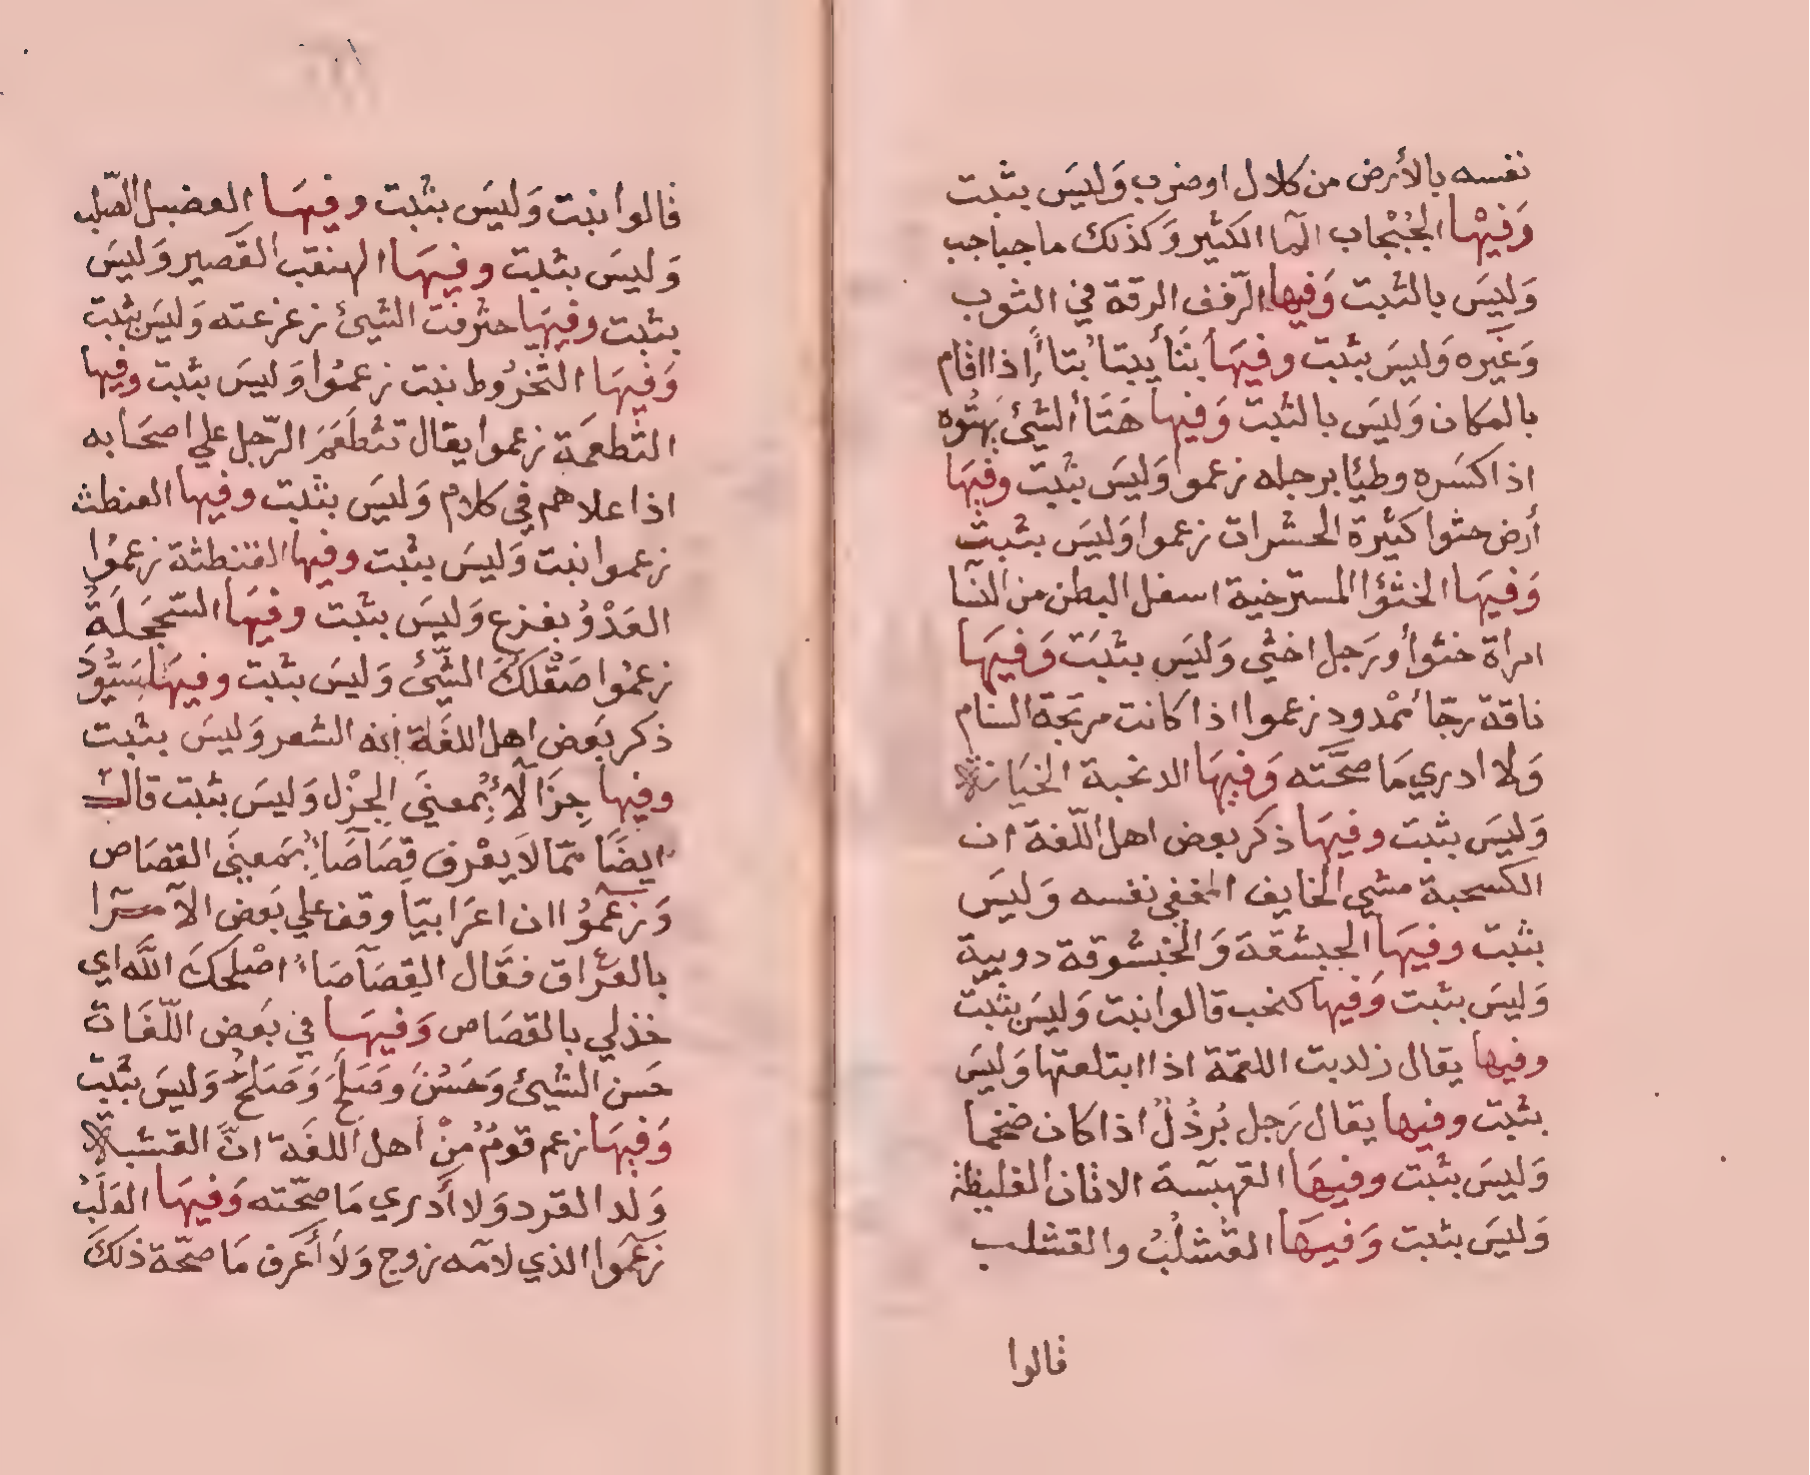 نفسه بالأرض من كلال او ضرب وَليسَ بثبت
وَفيْها الجُبْجاب المآ الكثير وَكذلك ما جباجب
وَليسَ بالثبت وَفيها الرّفف الرقة في الثوب
وَغيَره وَليسَ بثبت وفيهَا بَتَأ يبتأ بتأً إذا اقام
بالمكان وَليسَ بالثبت وَفيها هَتَأ الشئ يَهتُوه
اذا كسَره وطيًا برجله زعموا وَليسَ بثبت وفيهَا
أرض حثوا كثيرة الحشرات زعموا وَليسَ بثبت
وَفيهَا الخثوَا المسترخية اسفل البطن من النسآ
امرأة خثوأ ورَجل اخثي وَليسَ بثبَت وَفيهَا
ناقة رجّأ ممْدود زعموا اذا كانت مرتجة السنام
وَلا ادري مَا صحَّته وَفيهَا الدعنبة الخيَانة
وَليسَ بثبت وفيهَا ذكر بعض اهل اللّغة ان
الكسحبة مشي الخايف المخفي نفسه وَليسَ
بثبت وفيهَا الجبشقة وَالخبشوقة دويبة
وَليسَ بثبت وَفيها كنخب قالوا نبت وَليسَ بثبت
وفيها يقال زلدبت اللقمة اذا ابتلعتها وَليسَ
بثبت وفيها يقال رَجل بُرذُلٌ اذا كان ضخما
وَليسَ بثبت وفيهَا القهبسة الاتان الغليظة
وَليسَ بثبت وَفيهَا القُشلُبُ والقشلب
قالوا
قالوا نبت وَليسَ بثبت وفيهَا العضبل الصّلب
وَليسَ بثبت وفيهَا الهنقب القصير وَليسَ
بثبت وفيهَا حثرفت الشيئ زعزعته وَليسَ بثبت
وَفيهَا الثخرُوط نبت زعموُا وَليسَ بثبت وفيها
الثطعمَة زعموا يقال تثطعَمَ الرّجل علي اصحَابه
اذا علاهم في كلام وَليسَ بثبت وفيها العنطث
زعموا نبت وَليسَ بثبت وفيها القنطثة زعموُا
العَدْوُ بفزع وَليسَ بثبت وفيهَا السّحجَلَةُ
زعمُوا صَقْلكَ الشّئَ وَليسَ بثبت وفيهَا سَبُّودَ
ذكر بَعض اهل اللغَة إنه الشعر وَليسَ بثبت
وفيها جزَآلأ بمعنَي الجزْل وَليسَ بثبت قالَ
ايضَا ممّا لاَ يعْرف قِصَاصَآ بمَعنَي القصَاص
وَزعموُا ان اعرَابيّا وقف علي بَعض الآمرآ
بالعرَاق فقَال القِصَآصَآ اصْلحَكَ اللَّه اي
خذلي بالقصَاص وَفيهَا في بَعض اللّغَات
حَسن الشيئ وَحَسُنَ وصَلَحَ وَصَلحُ وَليسَ بثبت
وَفيهَا زعم قومٌ منْ أهل اللغَة انَّ القشبة
وَلد القرد وَلا أدري مَا صحّته وَفيهَا العَلَبُ
زعَموا الذي لامّه زوج وَلاَ أعَرف مَا صحّة ذلكَ